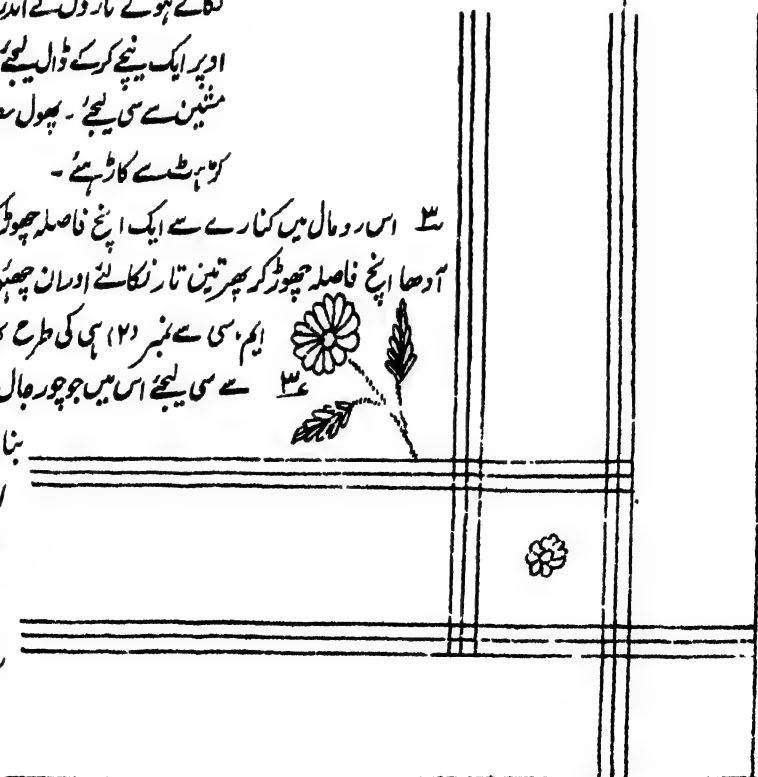 نکالے ہوئے تاروں کے اندر
اوپر ایک نیچے کرکے ڈال لیجئے
مشین سے سی لیجئے ۔ پھول
کڑہائی سے کاڑہئے ۔
۳ اس رومال میں کنارے سے ایک انچ فاصلہ چھوڑ
آدھا انچ فاصلہ چھوڑ کر پھر تین تار نکالئے اور ان
ایم۔سی سے نمبر (۲) ہی کی طرح
۳ سے سی لیجئے اس میں جو چور جال
بنا